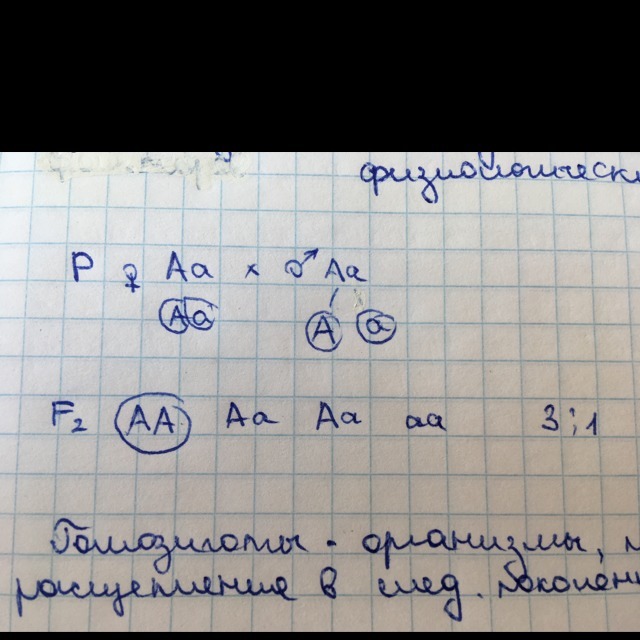 физиологически
P ♀ Aa x ♂ Aa
A a A a
F2 AA Aa Aa aa 3:1
Гомозиготы - организмы,
расщепление в след. поколен